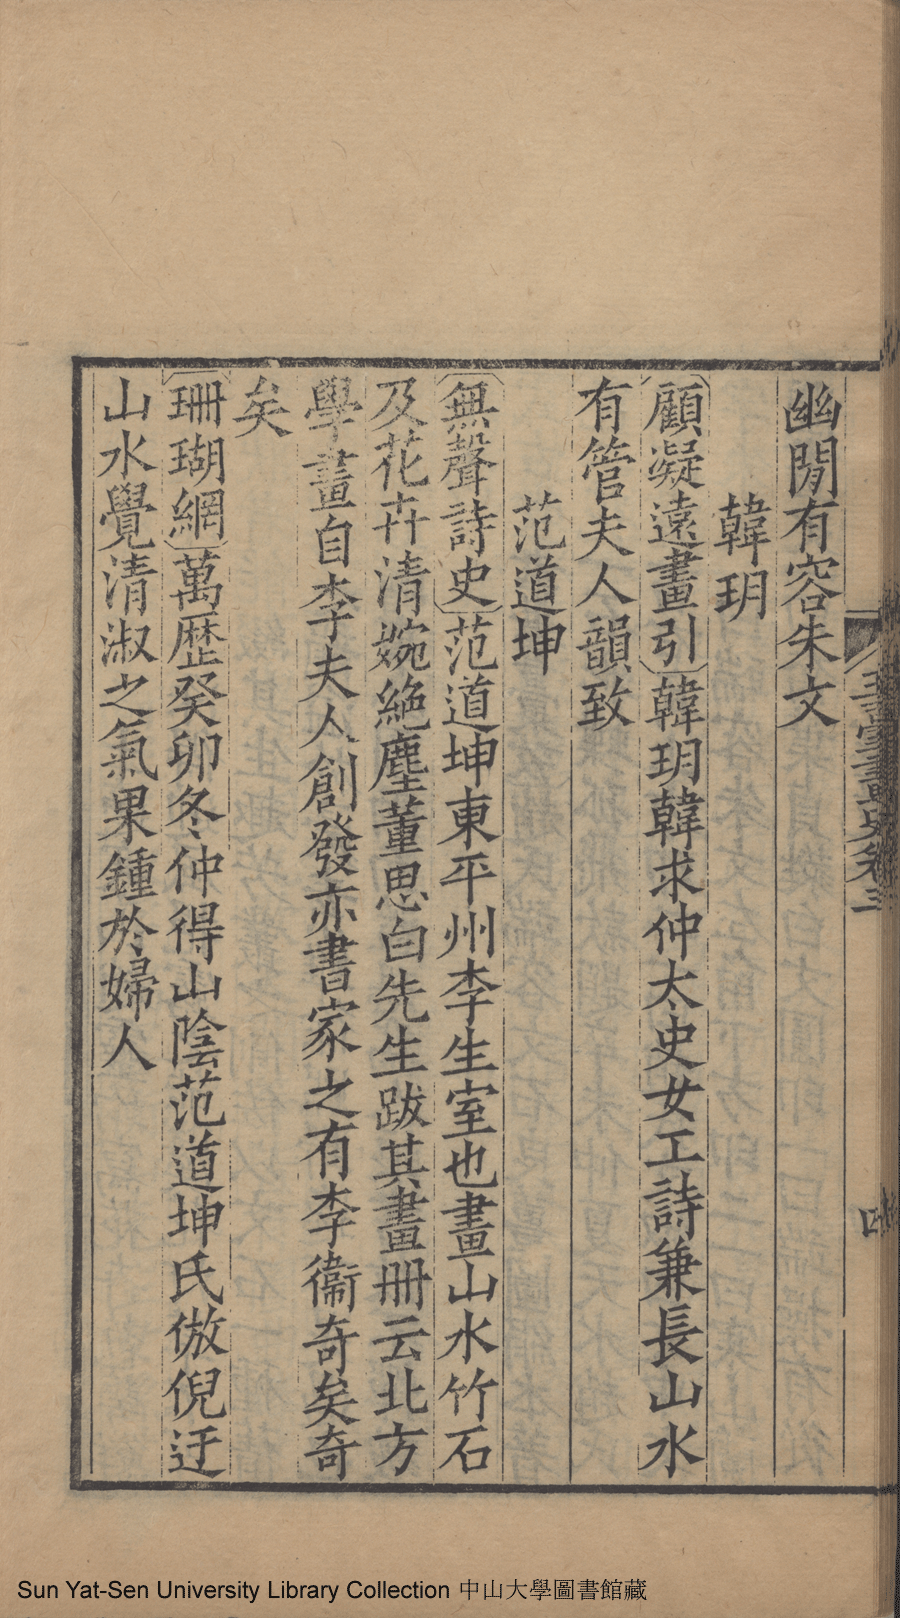 幽閒有容朱文
韓玥
顧凝遠畫引韓玥韓求仲太史女工詩兼長山水
有管夫人韻致
范道坤
無聲詩史范道坤東平州李生室也畫山水竹石
及花卉清婉絶塵董思白先生跋其畫册云北方
學畫自李夫人創發亦書家之有李衞奇矣奇
矣
珊瑚網萬歴癸卯冬仲得山陰范道坤氏倣倪迂
山水覺清淑之氣果鍾於婦人
玉臺畫史卷三
Sun Yat-Sen University Library Collection 中山大學圖書館藏